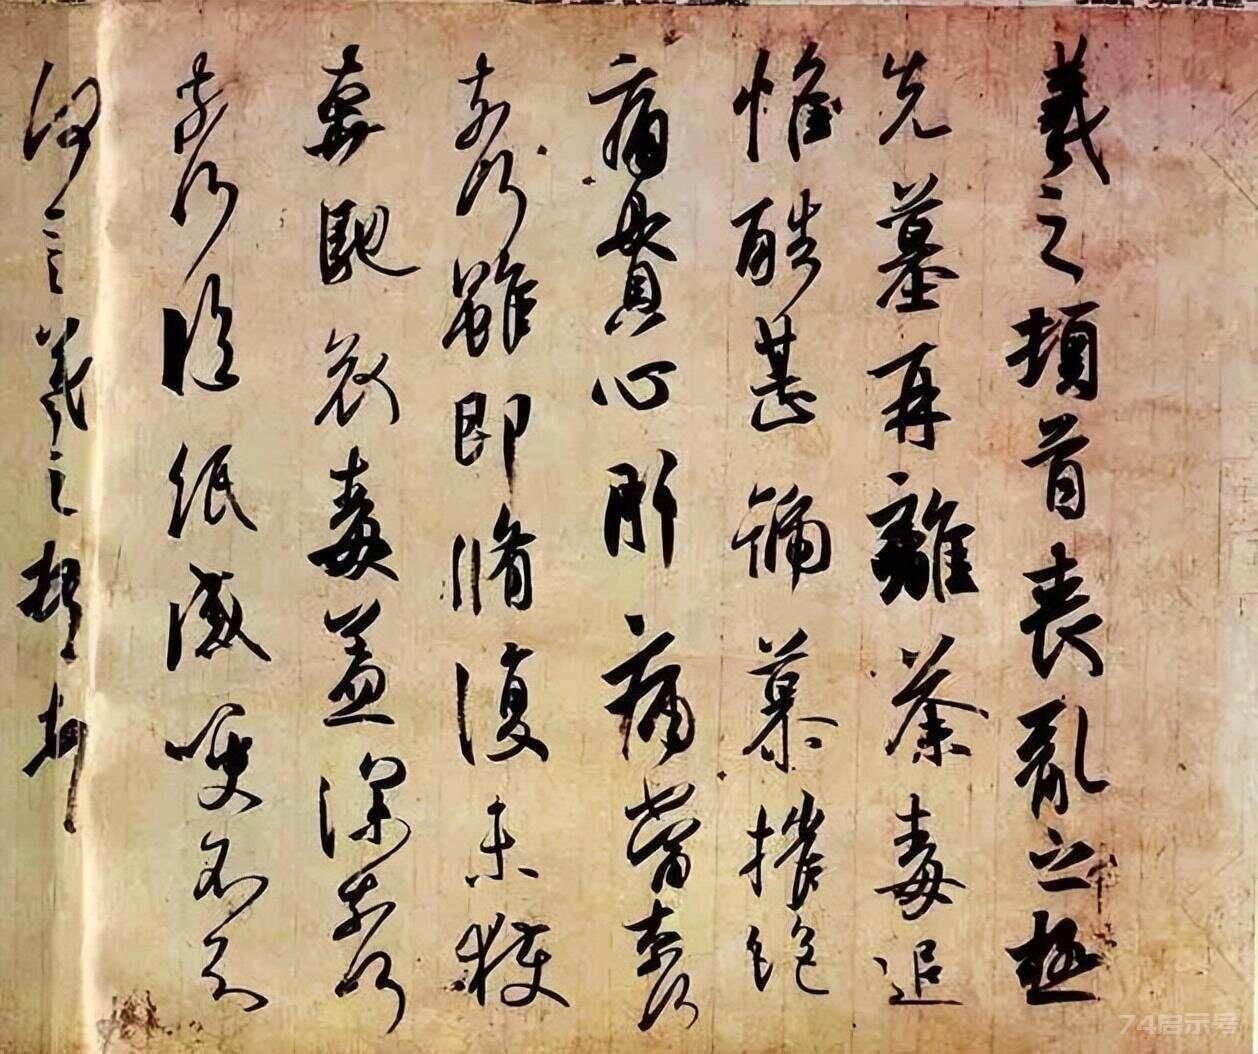 羲之頓首喪亂之極
先墓再離荼毒追
惟酷甚號慕摧絶
痛貫心肝痛當奈何
奈何雖即脩復未獲
奔馳哀毒益深奈何
奈何臨紙感哽不知
何言羲之頓首頓首
74启示号